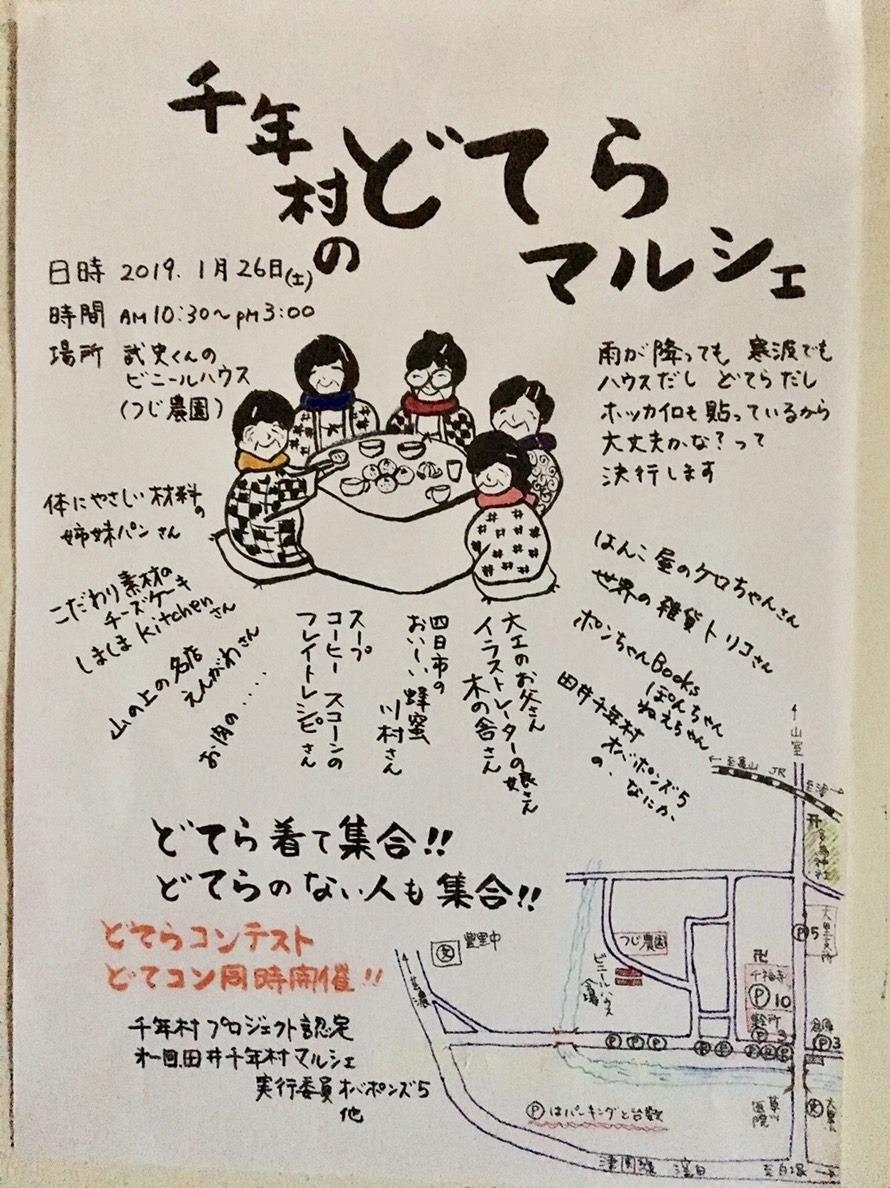 千年村の
どてら
マルシェ
日時 2019. 1月26日(土)
時間 AM10:30〜PM3:00
場所 武史くんの
ビニールハウス
(つじ農園)
雨が降っても 寒波でも
ハウスだし どてらだし
ホッカイロも貼っているから
大丈夫かな?って
決行します
体にやさしい材料の
姉妹パンさん
こだわり素材の
チーズケーキ
しましまkitchenさん
山の上の名店
えんがわさん
お肉の.....
スープ
コーヒー スコーンの
フレイトレシピさん
四日市の
おいしい蜂蜜
川村さん
大工のお父さん
イラストレーターの娘さん
木の舎さん
はんこ屋のケロちゃんさん
世界の雑貨トリコさん
ポンちゃんBooks
ぽんちゃん
ねえちゃん
田井千年村
オバポンズ5
の、なにか、
どてら着て集合!!
どてらのない人も集合!!
どてらコンテスト
どてコン同時開催!!
千年村プロジェクト認定
オ一回.田井千年村マルシェ
実行委員オバポンズ5
他
山室
至亀山 JR
至津
大里支所
P5
つじ農園
ビニールハウス
会場
卍
千福寺
P10
P3
倉庫
P3
文 豊里中
P P P
P P P P P
文
Pはパーキングと台数
草川
医院